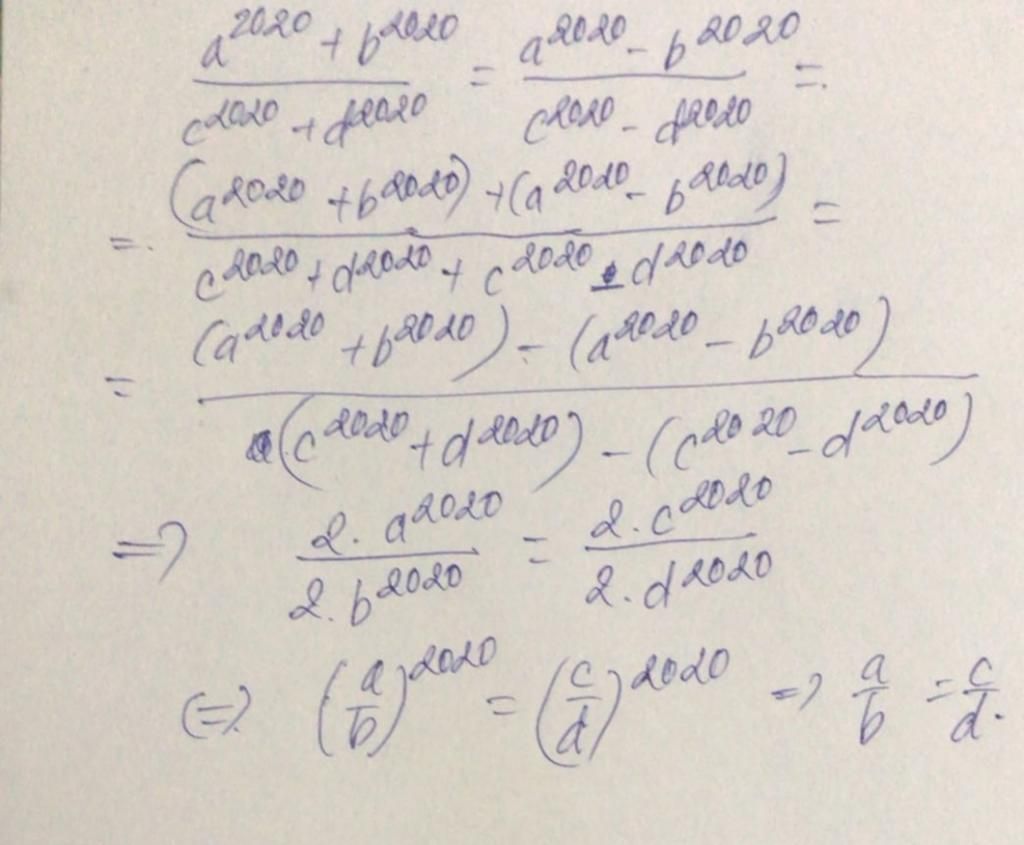 \frac{a^{2020} + b^{2020}}{c^{2020} + d^{2020}} = \frac{a^{2020} - b^{2020}}{c^{2020} - d^{2020}} =
= \frac{(a^{2020} + b^{2020}) + (a^{2020} - b^{2020})}{c^{2020} + d^{2020} + c^{2020} - d^{2020}} =
= \frac{(a^{2020} + b^{2020}) - (a^{2020} - b^{2020})}{(c^{2020} + d^{2020}) - (c^{2020} - d^{2020})}
=> \frac{2 . a^{2020}}{2 . b^{2020}} = \frac{2 . c^{2020}}{2 . d^{2020}}
(=) (\frac{a}{b})^{2020} = (\frac{c}{d})^{2020} => \frac{a}{b} = \frac{c}{d}.